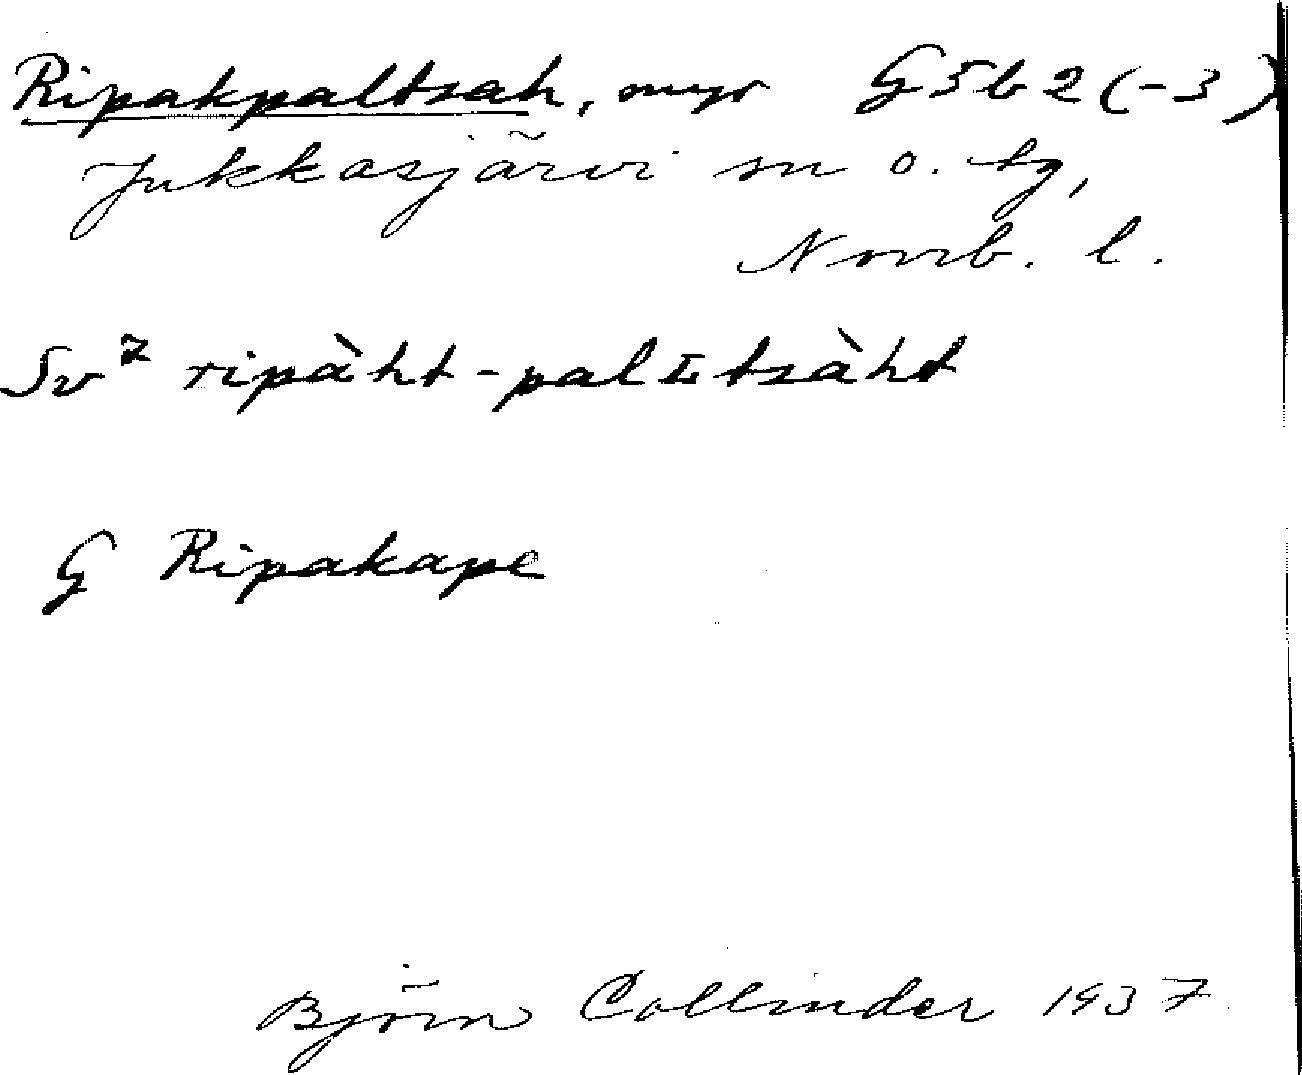 Ripakpaltsah, myr G5b2(-3)
Jukkasjärvi sn o. tg,
Norrb. l.
Sv⁷ ripàht-palɪtsàht
G Ripakape
Björn Collinder 1937